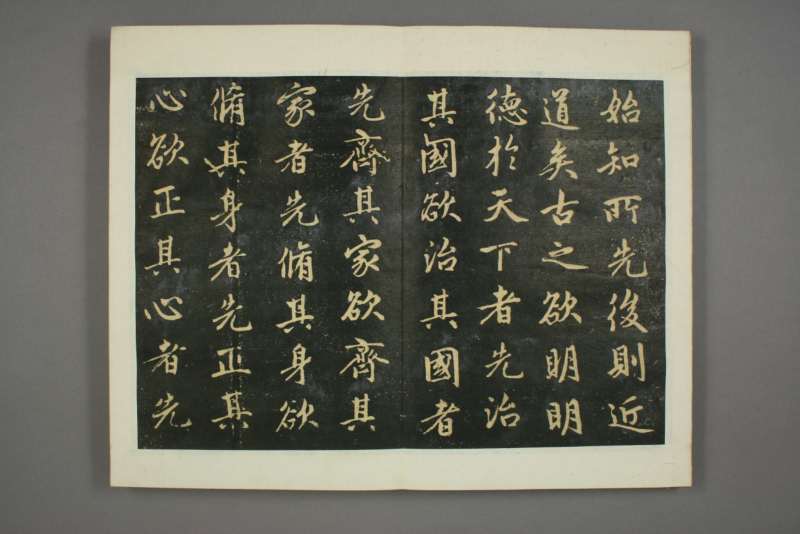 始知所先後則近
道矣古之欲明明
德於天下者先治
其國欲治其國者
先齊其家欲齊其
家者先脩其身欲
脩其身者先正其
心欲正其心者先